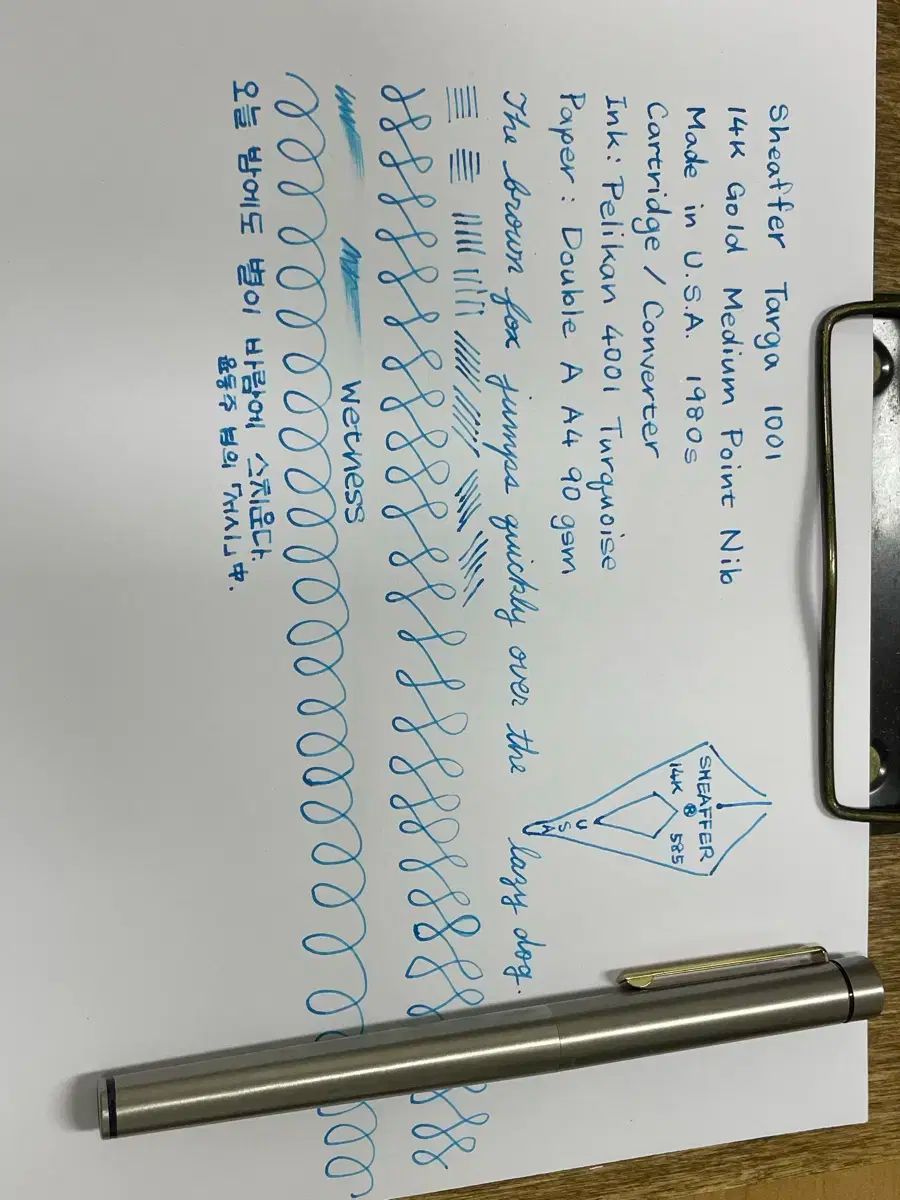 Sheaffer Targa 1001
14K Gold Medium Point Nib
Made in U.S.A. 1980s
Cartridge / Converter
Ink: Pelikan 4001 Turquoise
Paper: Double A A4 90 gsm
SHEAFFER
®
14K 585
U
S
A
The brown fox jumps quickly over the lazy dog.
wetness
오늘 밤에도 별이 바람에 스치운다.
윤동주 님의 「서시」 中.